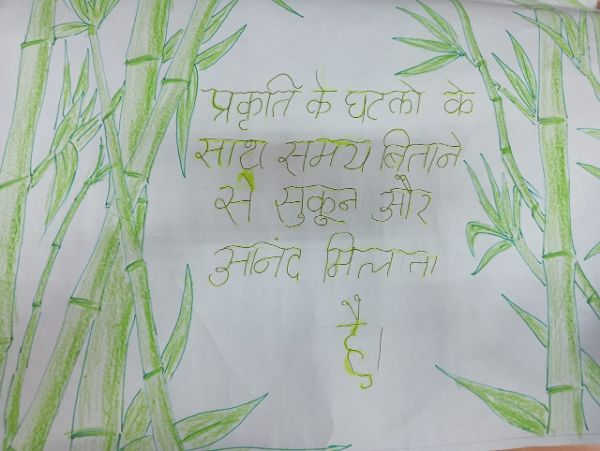 प्रकृति के घटको के
साथ समय बिताने
से सुकून और
आनंद मिलता
है।